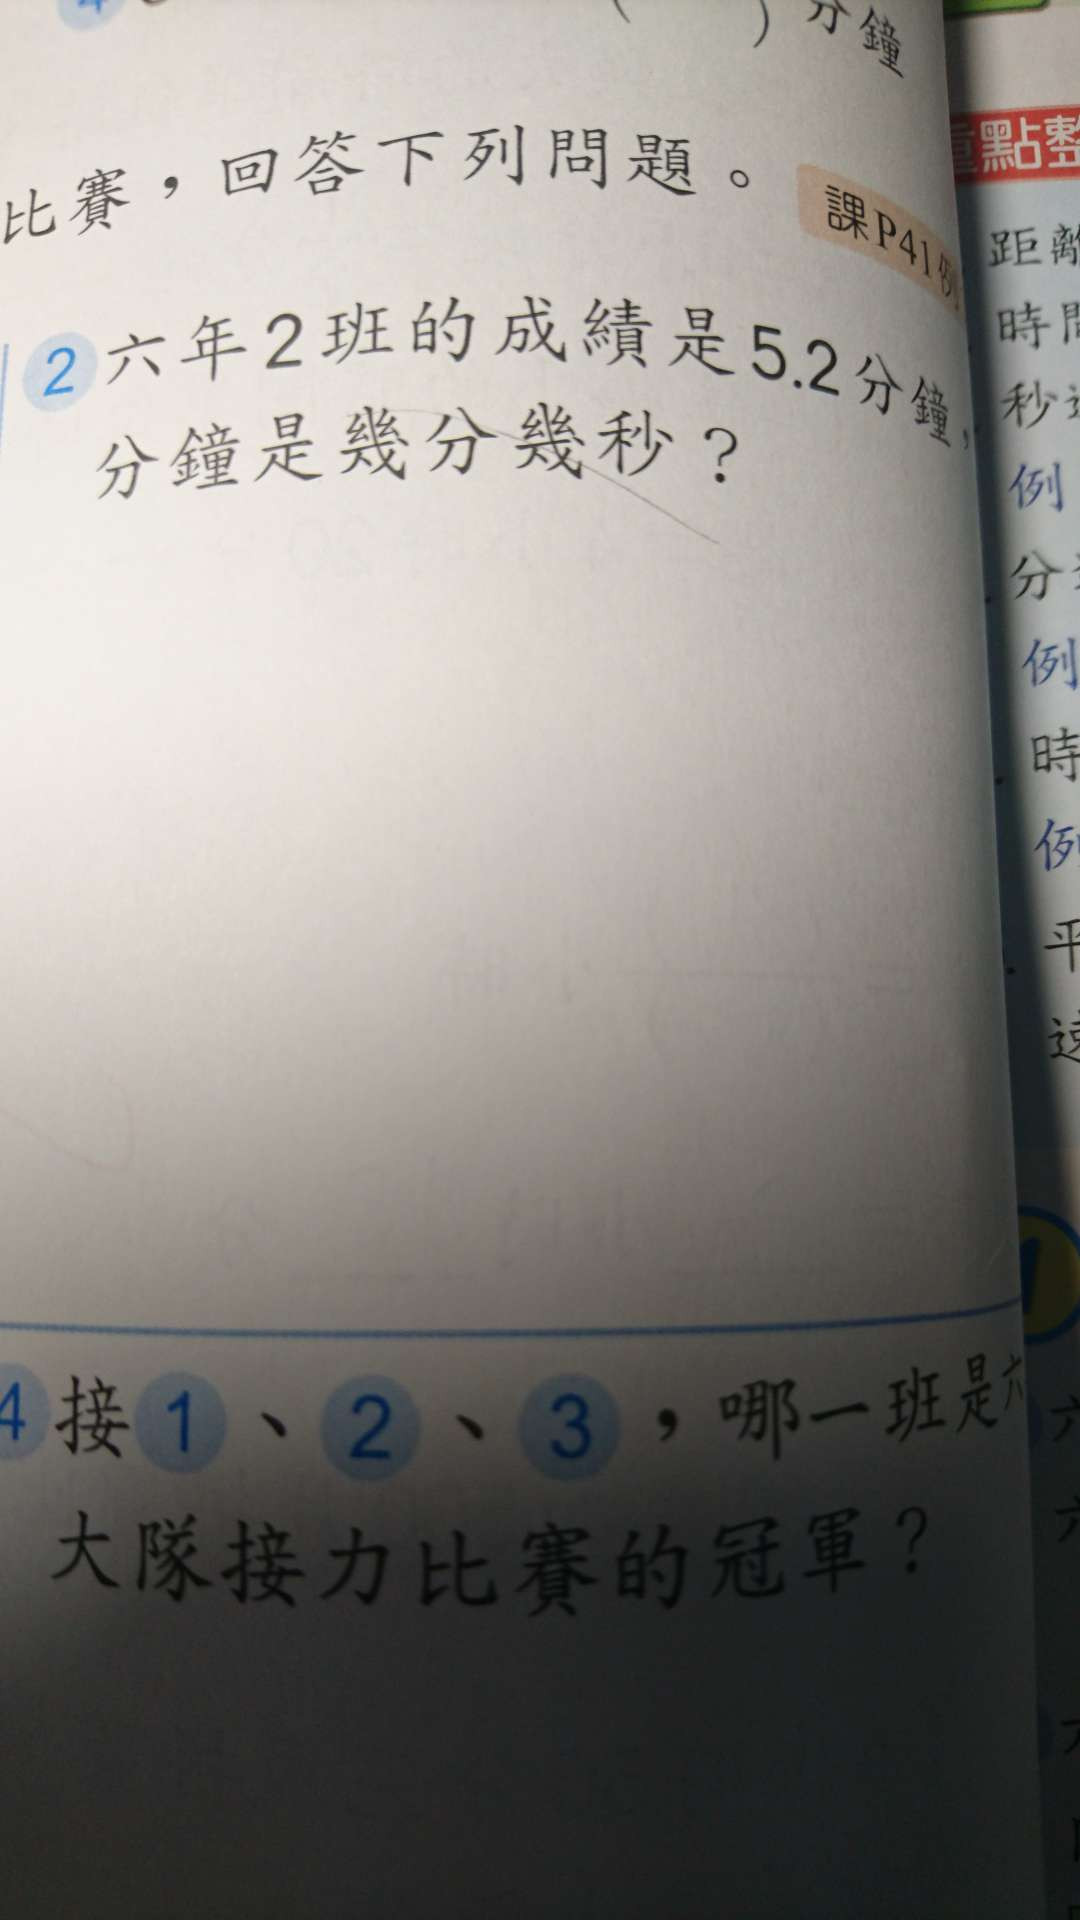 分鐘
比賽，回答下列問題。
課P41例
2 六年2班的成績是5.2分鐘，
分鐘是幾分幾秒？
4 接1、2、3，哪一班是六
大隊接力比賽的冠軍？
重點整
距離
時間
秒
例
分
例
時
例
平
速
1
六
六